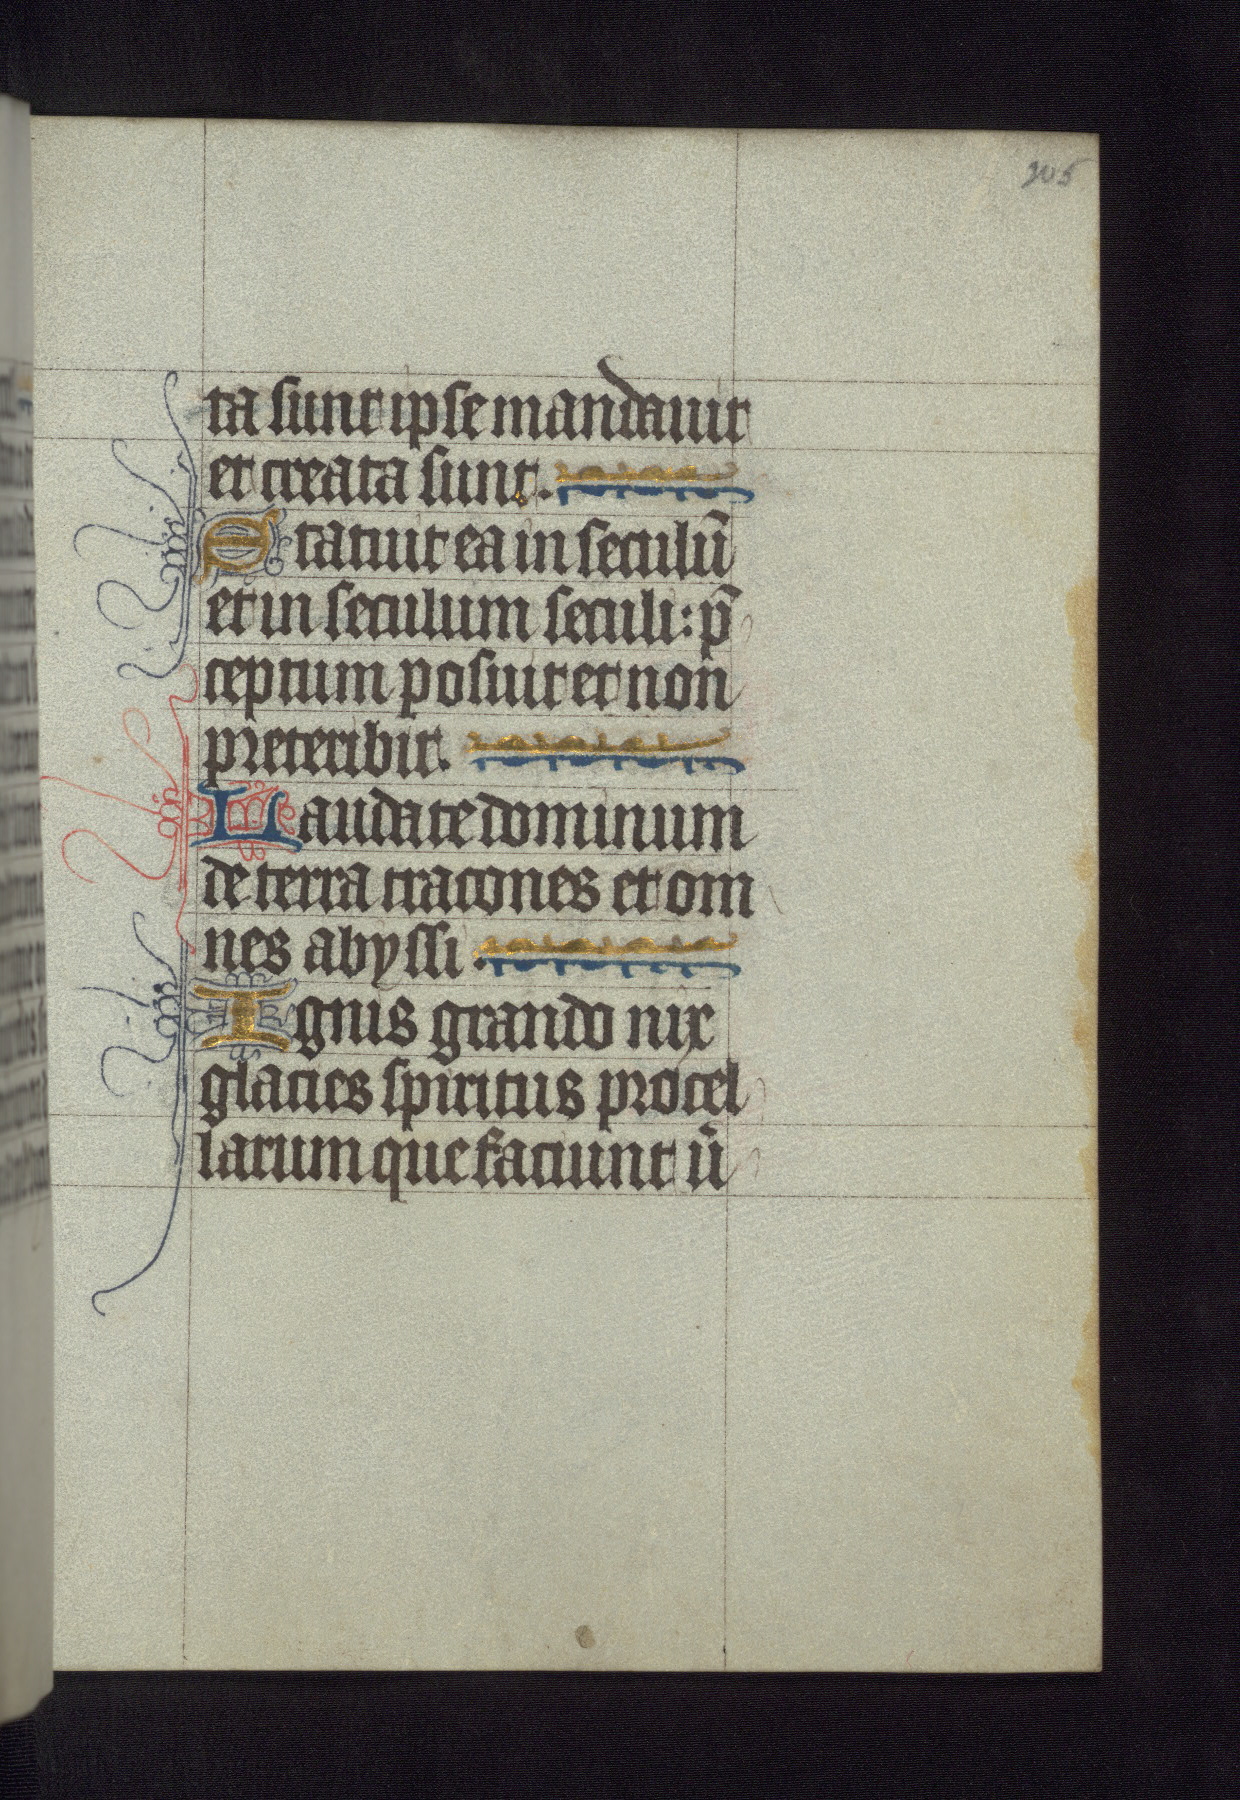 205
ta sunt ipse mandauit
et creata sunt.
Statuit ea in seculū
et in seculum seculi: p̄
ceptum posuit et non
preteribit.
Laudate dominum
de terra tracones et om
nes abyssi.
Ignis grando nix
glacies spiritus procel
larum que faciunt ū